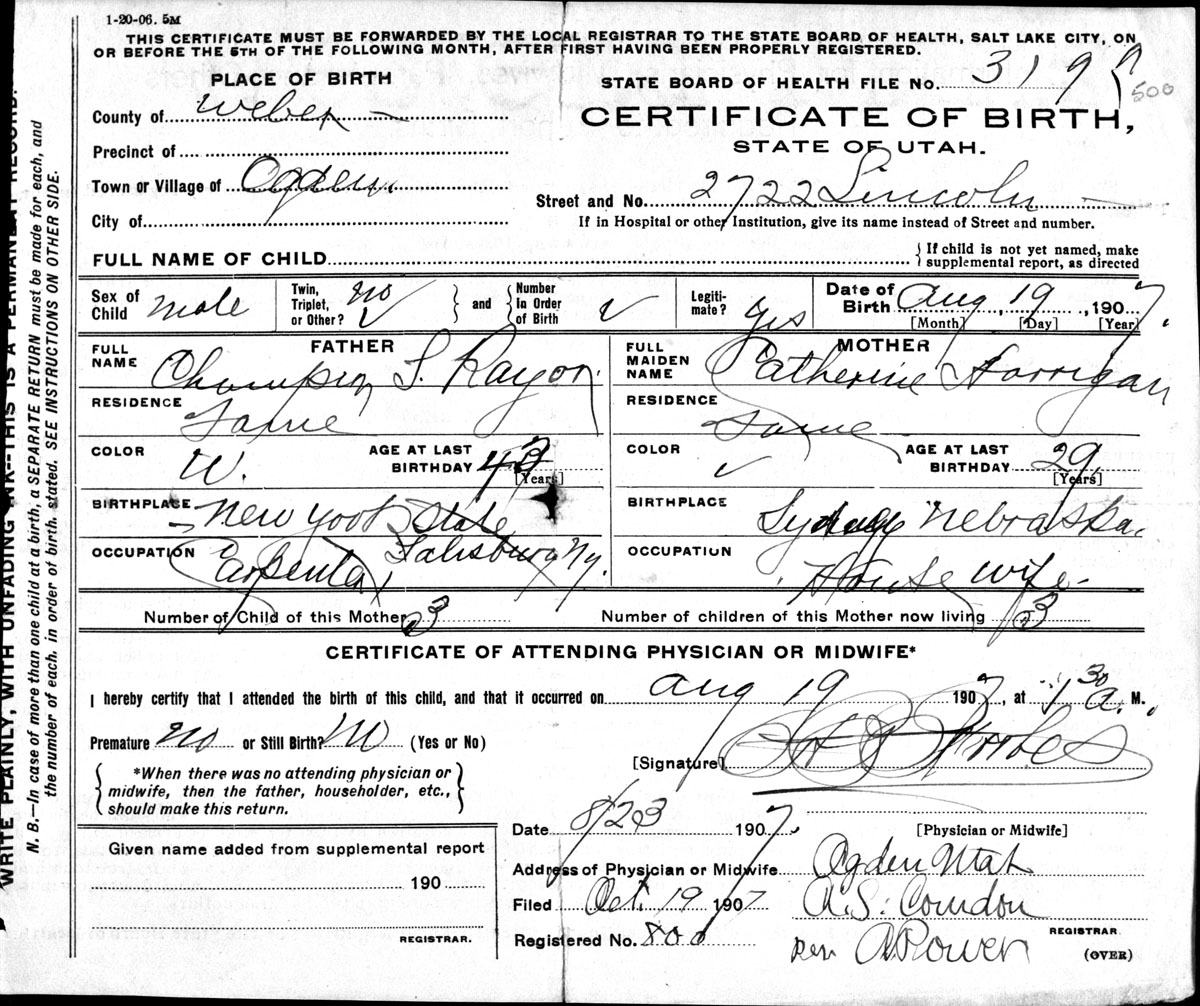 1-20-06. 5M
THIS CERTIFICATE MUST BE FORWARDED BY THE LOCAL REGISTRAR TO THE STATE BOARD OF HEALTH, SALT LAKE CITY, ON
OR BEFORE THE 5TH OF THE FOLLOWING MONTH, AFTER FIRST HAVING BEEN PROPERLY REGISTERED.
WRITE PLAINLY, WITH UNFADING INK--THIS IS A PERMANENT RECORD.
N. B.—In case of more than one child at a birth, a SEPARATE RETURN must be made for each, and
the number of each, in order of birth, stated. SEE INSTRUCTIONS ON OTHER SIDE.
PLACE OF BIRTH
County of Weber
Precinct of
Town or Village of Ogden
City of
STATE BOARD OF HEALTH FILE NO. 319
500
CERTIFICATE OF BIRTH,
STATE OF UTAH.
Street and No. 2722 Lincoln
If in Hospital or other Institution, give its name instead of Street and number.
FULL NAME OF CHILD
If child is not yet named, make
supplemental report, as directed
Sex of Child male
Twin, Triplet, or Other? no
and
Number In Order of Birth
Legiti-mate? yes
Date of Birth Aug 19, 1907.
[Month] [Day] [Year]
FATHER
FULL NAME Champion S. Rayon
RESIDENCE Same
COLOR W.
AGE AT LAST BIRTHDAY 43
[Years]
BIRTHPLACE New York State
Salisbury Ny.
OCCUPATION Carpenter
MOTHER
FULL MAIDEN NAME Catherine Horrigan
RESIDENCE Same
COLOR
AGE AT LAST BIRTHDAY 29
[Years]
BIRTHPLACE Nebraska.
OCCUPATION House wife
Number of Child of this Mother 3
Number of children of this Mother now living 3
CERTIFICATE OF ATTENDING PHYSICIAN OR MIDWIFE*
I hereby certify that I attended the birth of this child, and that it occurred on Aug 19 1907, at 1 30 a. M.,
Premature no or Still Birth? no (Yes or No)
*When there was no attending physician or
midwife, then the father, householder, etc.,
should make this return.
[Signature]
[Physician or Midwife]
Date 8/23 1907.
Address of Physician or Midwife Ogden Utah
Filed Oct. 19 1907
A.S. Condon
REGISTRAR
Registered No. 800
Per. A Rower
(OVER)
Given name added from supplemental report
190
REGISTRAR.